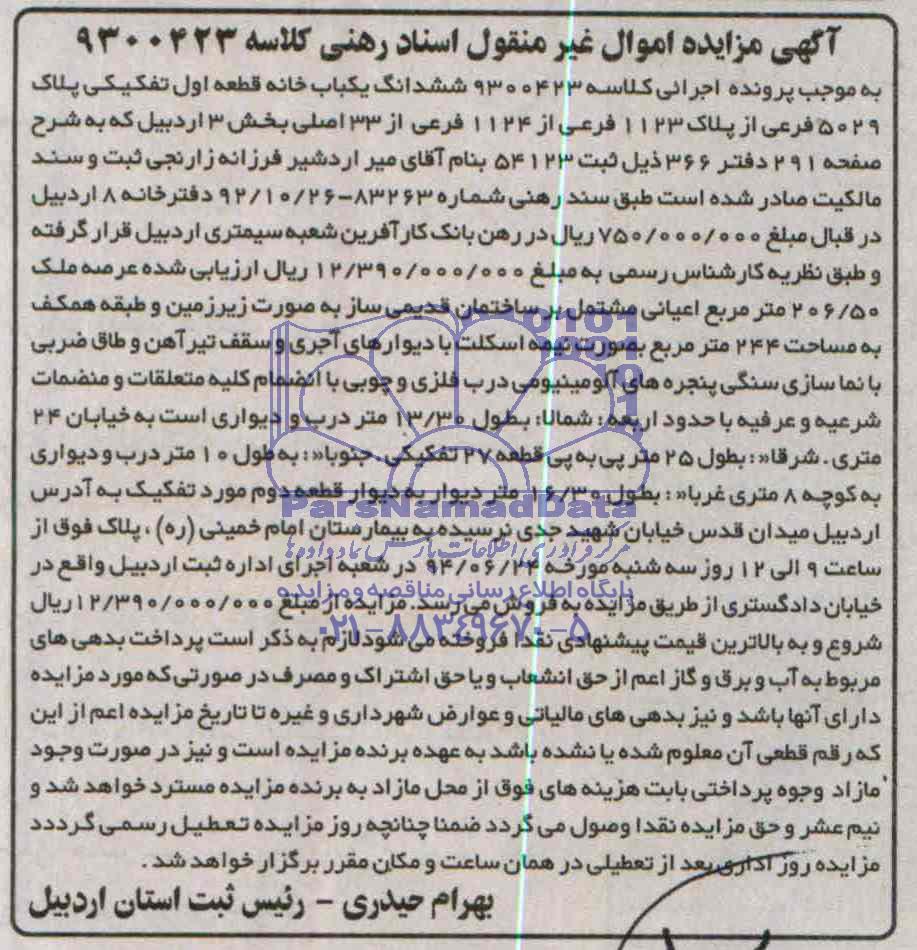 آگهی مزایده اموال غیر منقول اسناد رهنی کلاسه ۹۳۰۰۴۲۳
به موجب پرونده اجرائی کلاسه ۹۳۰۰۴۲۳ ششدانگ یکباب خانه قطعه اول تفکیکی پلاک
۵۰۲۹ فرعی از پلاک ۱۱۲۳ فرعی از ۱۱۲۴ فرعی از ۳۳ اصلی بخش ۳ اردبیل که به شرح
صفحه ۲۹۱ دفتر ۳۶۶ ذیل ثبت ۵۴۱۲۳ بنام آقای میر اردشیر فرزانه زارنجی ثبت و سند
مالکیت صادر شده است طبق سند رهنی شماره ۸۳۲۶۳-۹۲/۱۰/۲۶ دفترخانه ۸ اردبیل
در قبال مبلغ ۷۵۰/۰۰۰/۰۰۰ ریال در رهن بانک کارآفرین شعبه سیمتری اردبیل قرار گرفته
و طبق نظریه کارشناس رسمی به مبلغ ۱۲/۳۹۰/۰۰۰/۰۰۰ ریال ارزیابی شده عرصه ملک
۲۰۶/۵۰ متر مربع اعیانی مشتمل بر ساختمان قدیمی ساز به صورت زیرزمین و طبقه همکف
به مساحت ۲۴۴ متر مربع بصورت نیمه اسکلت با دیوارهای آجری و سقف تیرآهن و طاق ضربی
با نما سازی سنگی پنجره های آلومینیومی درب فلزی و چوبی با انضمام کلیه متعلقات و منضمات
شرعیه و عرفیه با حدود اربعه: شمالا: بطول ۱۳/۳۰ متر درب و دیواری است به خیابان ۲۴
متری. شرقا«: بطول ۲۵ متر پی به پی قطعه ۲۷ تفکیکی. جنوبا«: به طول ۱۰ متر درب و دیواری
به کوچه ۸ متری غربا«: بطول ۱۶/۳۰ متر دیوار به دیوار قطعه دوم مورد تفکیک به آدرس
ParsNamadData
اردبیل میدان قدس خیابان شهید جدی نرسیده به بیمارستان امام خمینی (ره)، پلاک فوق از
مرکز فرآوری اطلاعات پارس نماد داده ها
ساعت ۹ الی ۱۲ روز سه شنبه مورخه ۹۴/۰۶/۲۴ در شعبه اجرای اداره ثبت اردبیل واقع در
پایگاه اطلاع رسانی مناقصه و مزایده
خیابان دادگستری از طریق مزایده به فروش می رسد. مزایده از مبلغ ۱۲/۳۹۰/۰۰۰/۰۰۰ ریال
۰۲۱-۸۸۳۴۹۶۷۰-۵
شروع و به بالاترین قیمت پیشنهادی نقدا فروخته می شودلازم به ذکر است پرداخت بدهی های
مربوط به آب و برق و گاز اعم از حق انشعاب و یا حق اشتراک و مصرف در صورتی که مورد مزایده
دارای آنها باشد و نیز بدهی های مالیاتی و عوارض شهرداری و غیره تا تاریخ مزایده اعم از این
که رقم قطعی آن معلوم شده یا نشده باشد به عهده برنده مزایده است و نیز در صورت وجود
مازاد وجوه پرداختی بابت هزینه های فوق از محل مازاد به برنده مزایده مسترد خواهد شد و
نیم عشر و حق مزایده نقدا وصول می گردد ضمنا چنانچه روز مزایده تعطیل رسمی گرددد
مزایده روز اداری بعد از تعطیلی در همان ساعت و مکان مقرر برگزار خواهد شد.
بهرام حیدری - رئیس ثبت استان اردبیل